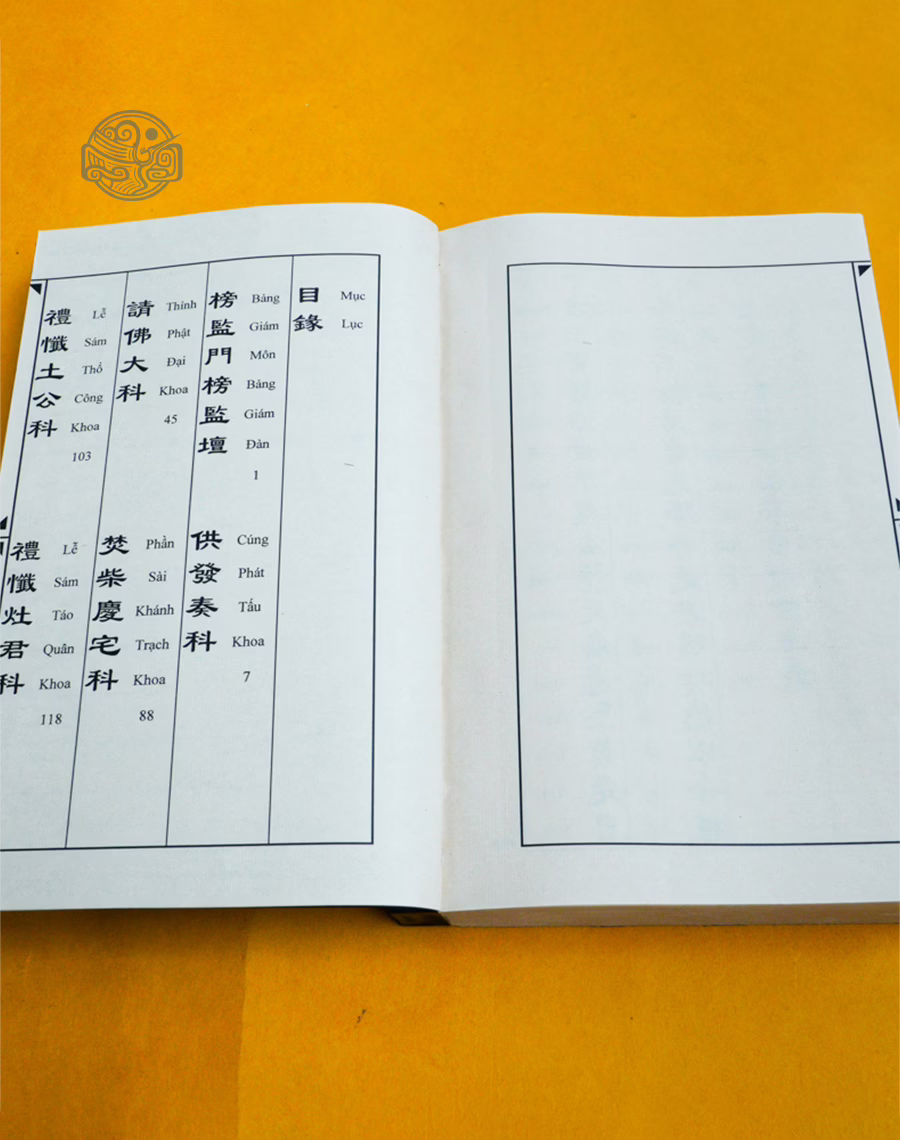 目錄 Mục Lục
榜監門榜監壇 Bảng Giám Môn Bảng Giám Đàn 1
供發奏科 Cúng Phát Tấu Khoa 7
請佛大科 Thỉnh Phật Đại Khoa 45
焚柴慶宅科 Phần Sài Khánh Trạch Khoa 88
禮懺土公科 Lễ Sám Thổ Công Khoa 103
禮懺灶君科 Lễ Sám Táo Quân Khoa 118